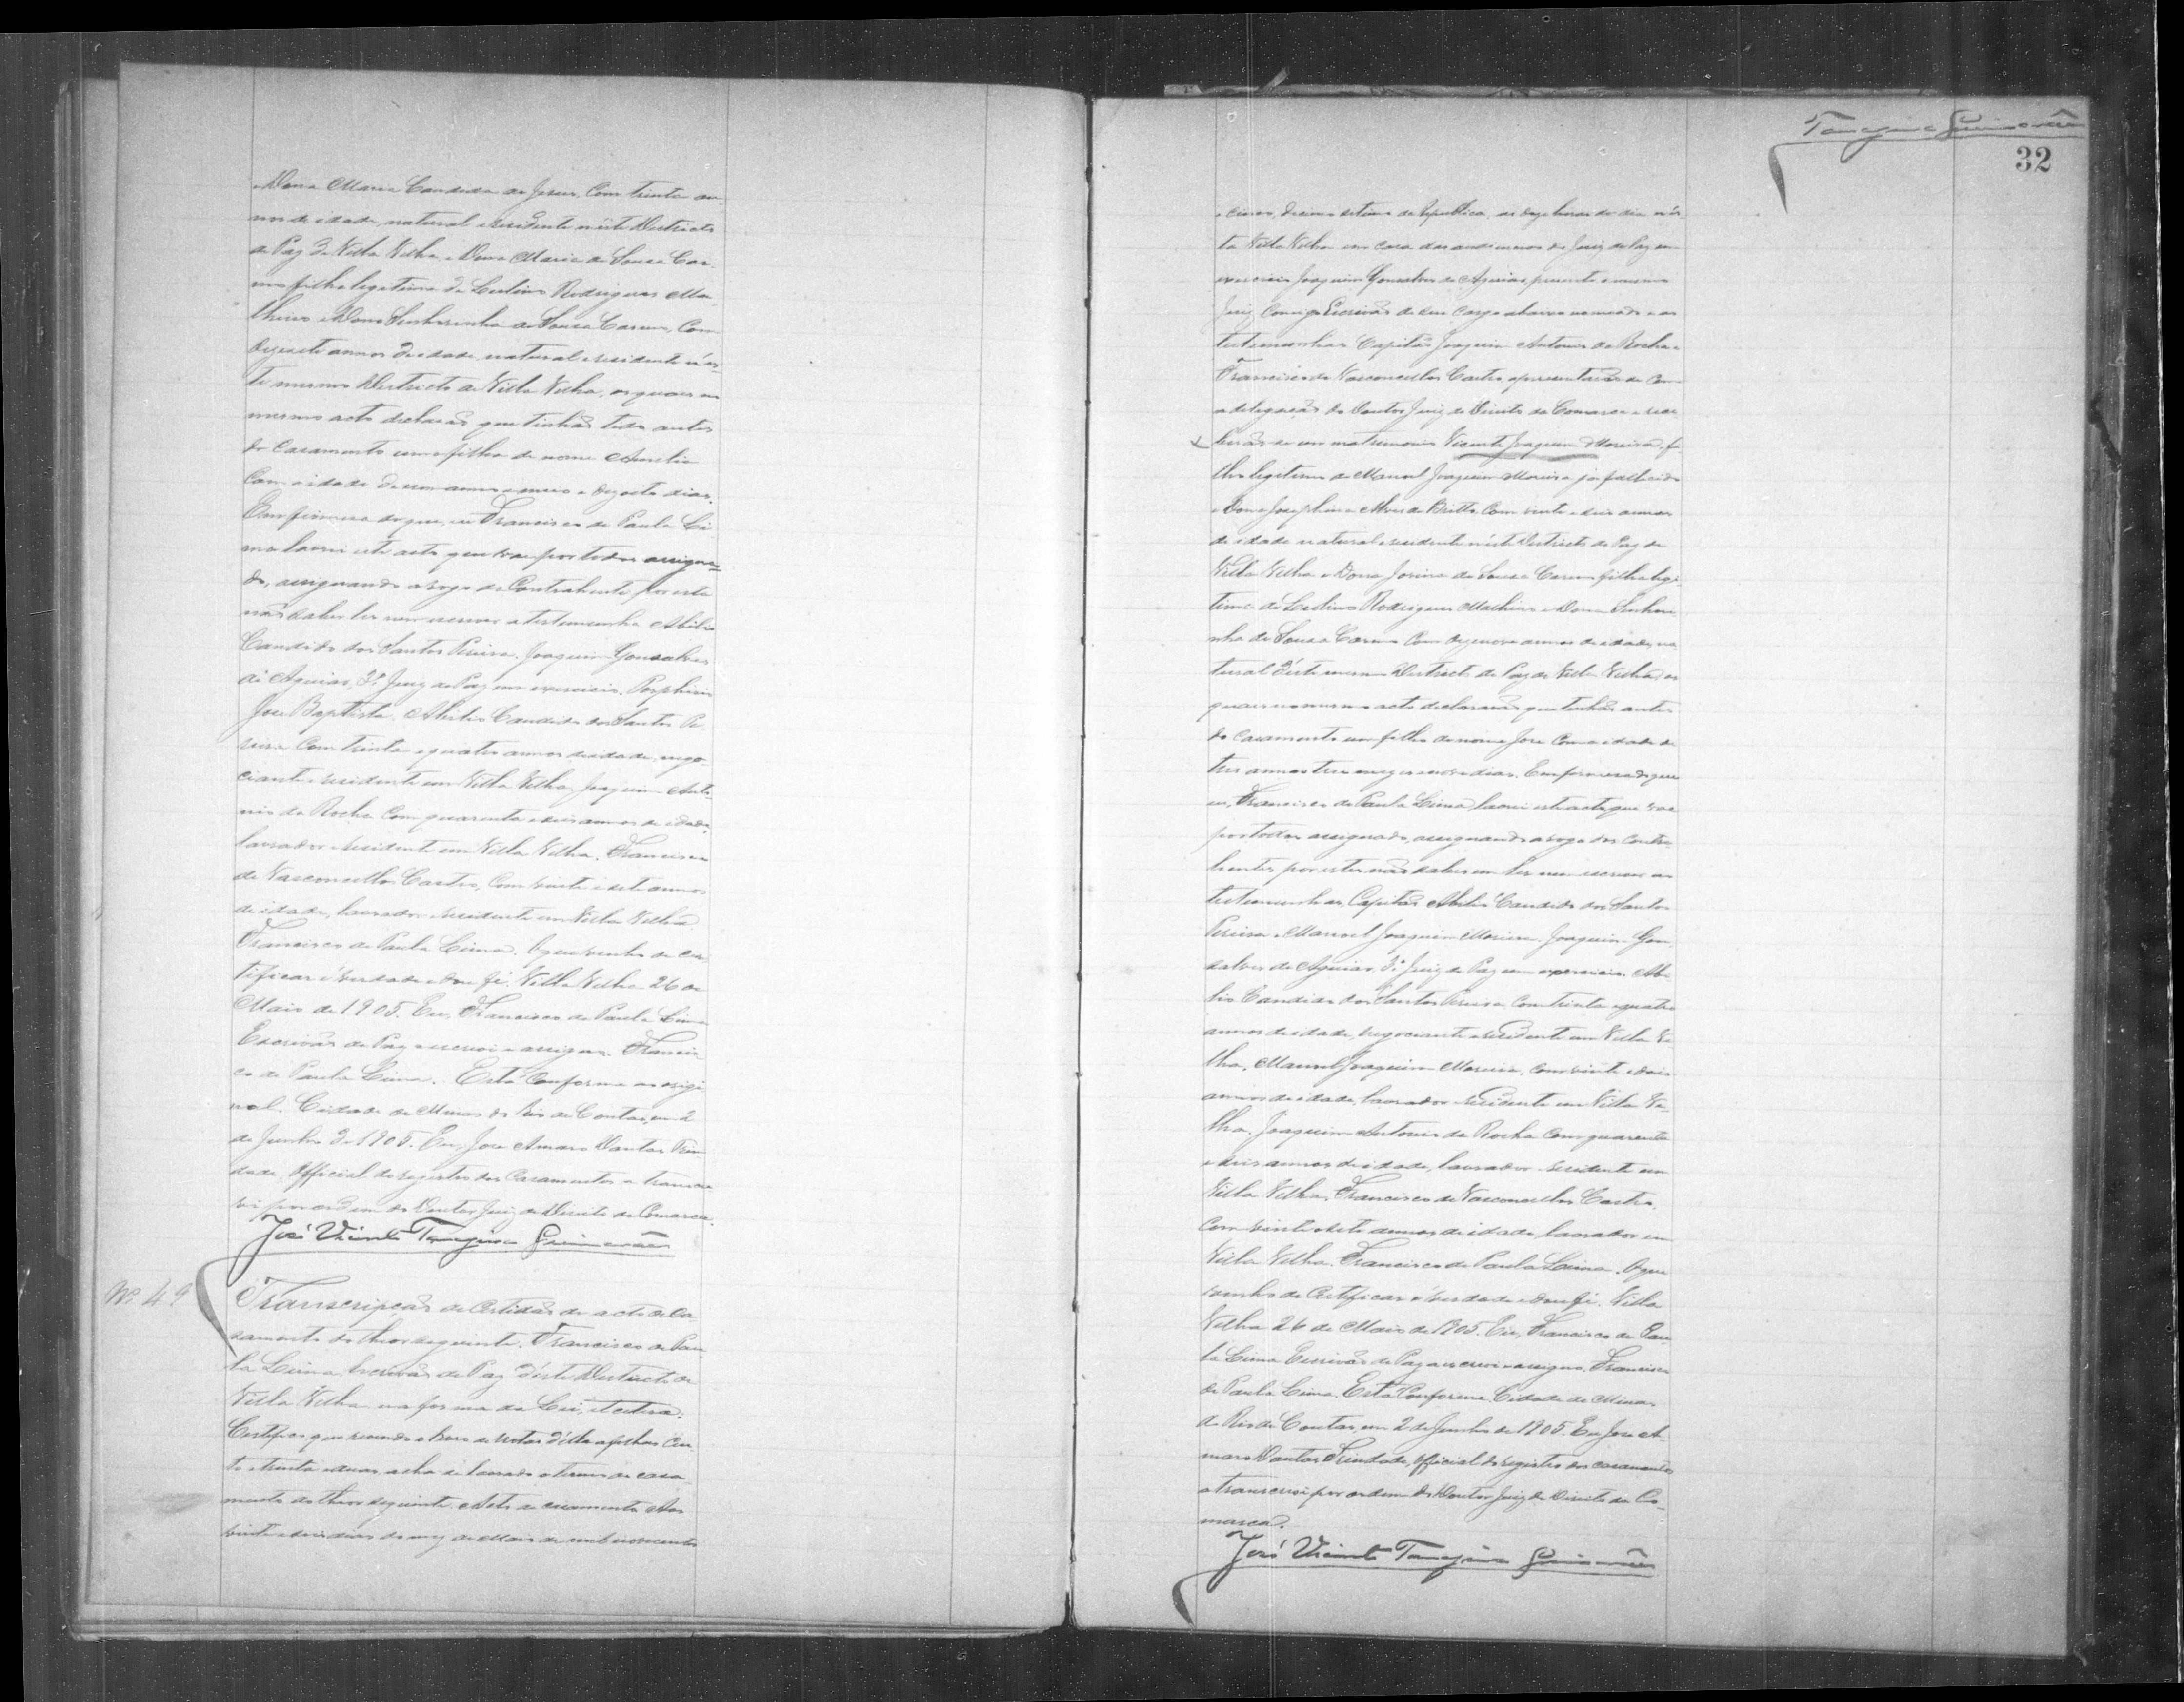 e Dona Maria Candida de Jesus, com trinta an
nos de idade, natural e residente n'este Districto
de Paz de Villa Velha, e Dona Maria de Sousa Car
mo filha legitima de Lulino Rodrigues Ma
lheiro e Dona Senhorinha de Sousa Carmo, com
desesete annos de idade, natural e residente n'es
te mesmo Districto de Villa Velha, os quaes no
mesmo acto declarão que tinhão tido antes
do casamento uma filha de nome Amelia
com a idade de um anno e meio e desoito dias.
Em firmesa do que, eu Francisco de Paula Li
ma lavrei este acto que vae por todos assigna=
do, assignando a rogo da Contrahente, por esta
não saber ler nem escrever a testemunha Abilio
Candido dos Santos Pereira. Joaquim Gonsalves
de Aguiar, 3º Juiz de Paz em exercicio. Porphirio
José Baptista. Abilio Candido dos Santos Pe
reira com trinta e quatro annos de idade, nego
ciante e residente em Villa Velha, Joaquim Anto
nio da Rocha com quarenta e seis annos de idade,
lavrador e residente em Villa Velha. Francisco
de Vasconcellos Castro, com vinte e sete annos
de idade, lavrador e residente em Villa Velha
Francisco de Paula Lima. O que venho de cer
tificar é verdade e dou fé. Villa Velha 26 de
Maio de 1905. Eu, Francisco de Paula Lima
Escrivão de Paz escrevi e assigno. Francis
co de Paula Lima. Está conforme ao origi
nal. Cidade de Minas do Rio de Contas, em 2
de Junho de 1905. Eu, José Amaro Dantas Trin
dade, Official do registro dos Casamentos a transcre
vi por ordem do Doutor Juiz de Direito da Comarca.
José Vicente Tanajura Guimarães
Nº 49
Transcripção da Certidão do acto de ca
samento do theor seguinte. Francisco de Pau
la Lima, Escrivão de Paz d'este Districto de
Villa Velha na forma da Lei, etcetera.
Certifico que revendo o livro de notas d'elle a folhas cen
to e trinta e duas acha-se lavrado o termo de casa
mento do theor seguinte. Acto de casamento. Aos
vinte e seis dias do mez de Maio de mil novecentos
Tanajura Guimarães
32
e cinco, decimo setimo da Republica, as doze horas do dia n'es
ta Villa Velha em casa das audiencias do Juiz de Paz em
exercicio Joaquim Gonsalves de Aguiar, presente o mesmo
Juiz, comigo Escrivão de seu cargo abaixo nomeado e as
testemunhas Capitão Joaquim Antonio da Rocha e
Francisco de Vasconcellos Castro, apresentarão-se com
a delegação do Doutor Juiz de Direito da Comarca e rece
berão-se em matrimonio Vicente Joaquim Moreira, fi
lho legitimo de Manoel Joaquim Moreira já fallecido
e Dona Josephina Alves de Britto, com vinte e seis annos
de idade natural e residente n'este Districto de Paz de
Villa Velha e Dona Jovina de Sousa Carmo filha legi
tima de Lulino Rodrigues Malheiro e Dona Senhori
nha de Sousa Carmo com desenove annos de idade, na
tural d'este mesmo Districto de Paz de Villa Velha, os
quaes no mesmo acto declararão que tinhão antes
do casamento um filho de nome José com a idade de
tres annos tres meses e nove dias. Em firmesa do que
eu, Francisco de Paula Lima, lavrei este acto que vae
por todos assignado, assignando a rogo dos Contra
hentes, por estes não saberem ler nem escrever as
testemunhas, Capitão Abilio Candido dos Santos
Pereira e Manoel Joaquim Moreira. Joaquim Gon
salves de Aguiar, 3º Juiz de Paz em exercicio. Abi
lio Candido dos Santos Pereira com trinta e quatro
annos de idade, negociante e residente em Villa Ve
lha, Manoel Joaquim Moreira, com vinte e dois
annos de idade, lavrador e residente em Villa Ve
lha. Joaquim Antonio da Rocha com quarenta
e seis annos de idade, lavrador e residente em
Villa Velha, Francisco de Vasconcellos Castro,
com vinte e sete annos de idade lavrador em
Villa Velha. Francisco de Paula Lima. O que
venho de Certificar é verdade e dou fé. Villa
Velha 26 de Maio de 1905. Eu, Francisco de Pau
la Lima Escrivão de Paz escrevi e assigno. Francisco
de Paula Lima. Está Conforme. Cidade de Minas
do Rio de Contas, em 2 de Junho de 1905. Eu José A
maro Dantas Trindade, official do registro dos casamentos
a transcrevi por ordem do Doutor Juiz de Direito da Co
marca.
José Vicente Tanajura Guimarães